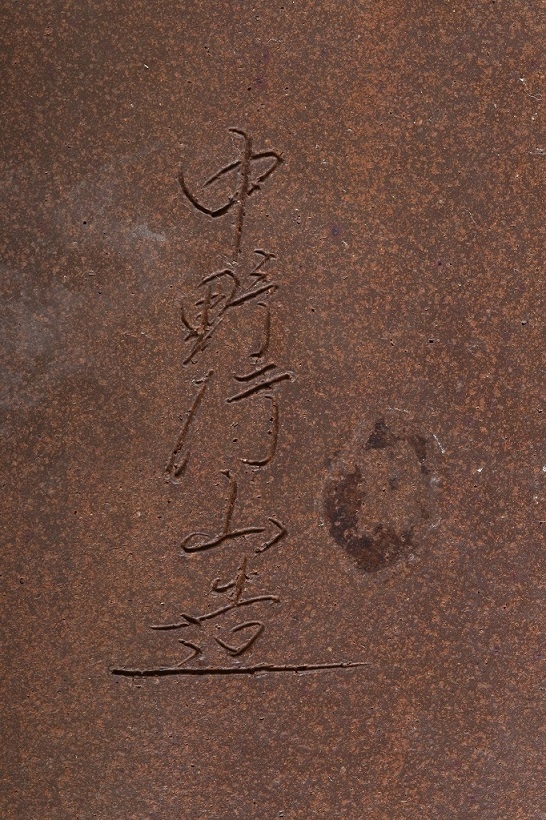 中野行山造